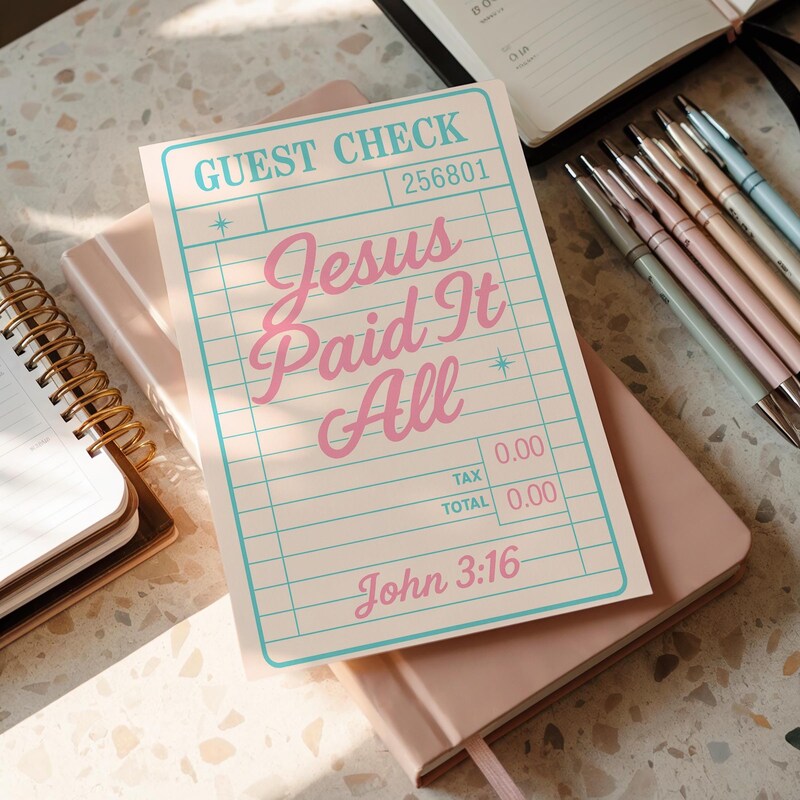 GUEST CHECK
256801
Jesus
Paid It
All
0.00
TAX
TOTAL 0.00
John 3:16